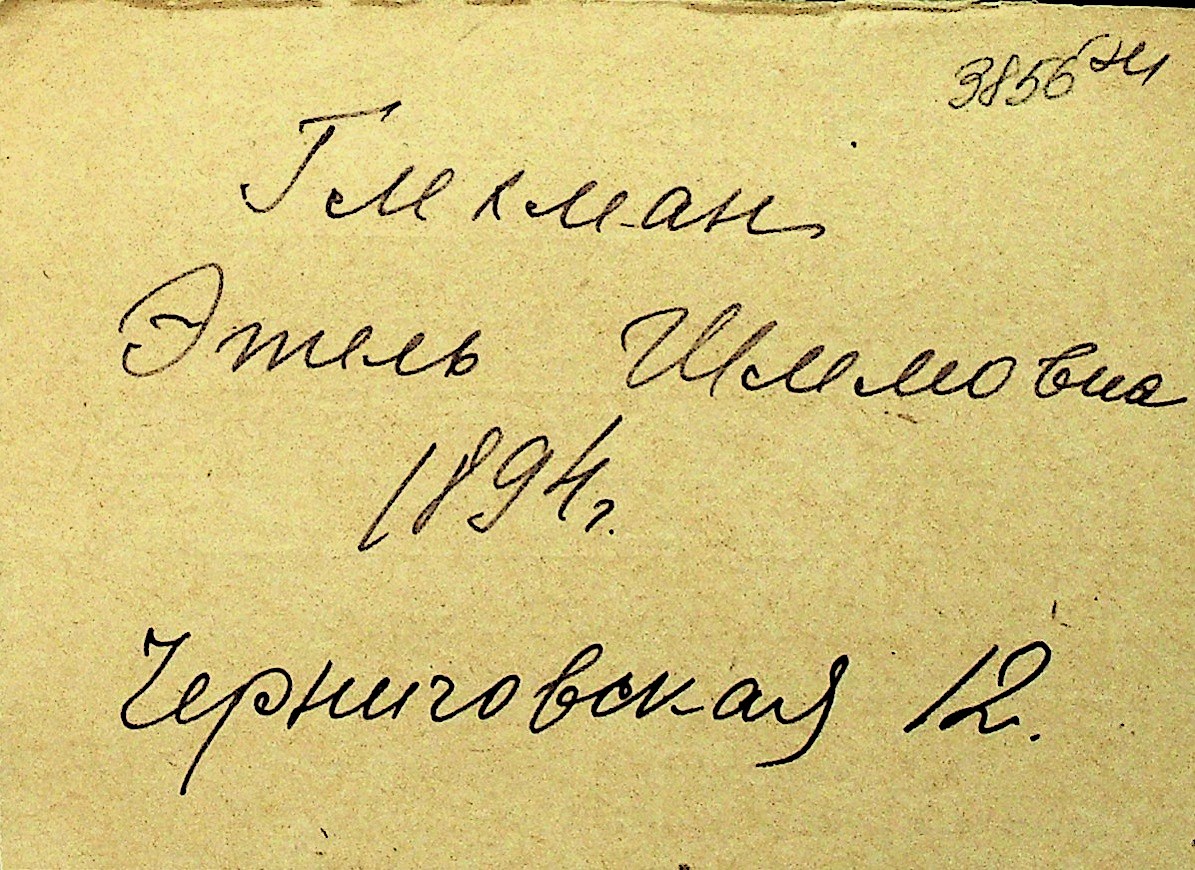 3856
Гликман
Этель Шлемовна
1894г.
Черниговская 12.